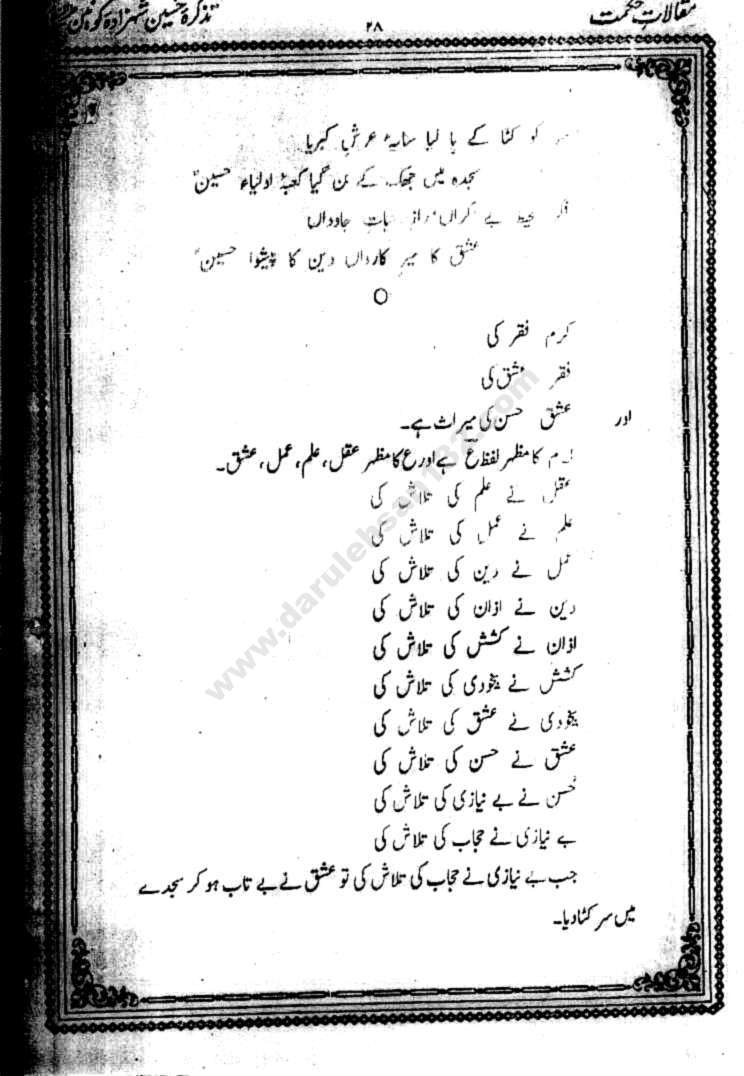 مقالاتِ حکمت
۲۸
تذکرہ حسین شہزادہ کونین
کو کٹا کے پا لیا سایۂ عرشِ کبریا
سجدہ میں جھک کے بن گیا کعبۂ اولیاء حسینؑ
بے کراں راز جاوداں
عشق کا میرِ کارواں دین کا پیشوا حسینؑ
کرم فقر کی
فقر عشق کی
اور عشق حسن کی میراث ہے۔
کا مظہر لفظ ع ہے اور ع کا مظہر عقل، علم، عمل، عشق۔
عقل نے علم کی تلاش کی
علم نے عمل کی تلاش کی
عمل نے دین کی تلاش کی
دین نے اذان کی تلاش کی
اذان نے کشش کی تلاش کی
کشش نے بیخودی کی تلاش کی
بیخودی نے عشق کی تلاش کی
عشق نے حسن کی تلاش کی
حُسن نے بے نیازی کی تلاش کی
بے نیازی نے حجاب کی تلاش کی
جب بے نیازی نے حجاب کی تلاش کی تو عشق نے بے تاب ہو کر سجدے
میں سر کٹا دیا۔
www.darulehsan131.com